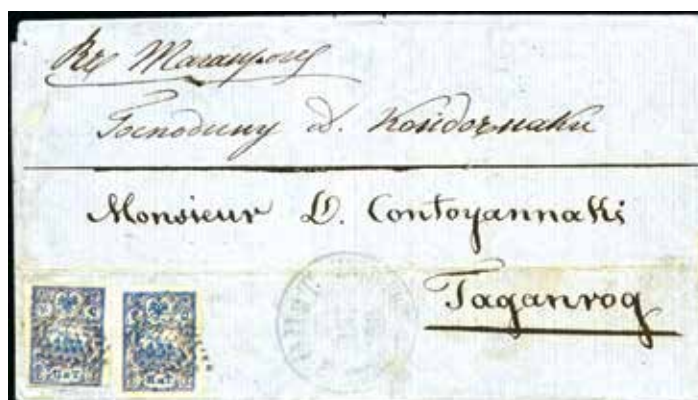 Въ Таганрогъ
Господину Д. Кондоянаки
Monsieur D. Contoyannaki
Taganrog